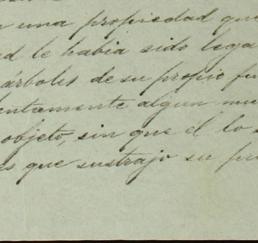 una propiedad que
le habia sido lega
árboles de su propio fu
entamente algun mu
objeto, sin que él lo s
que sustrajo su pri